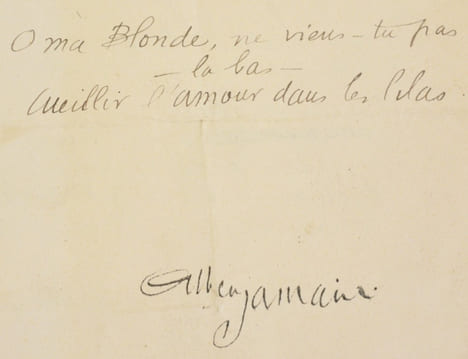 O ma Blonde, ne viens-tu pas
- la bas -
Cueillir l'amour dans les lilas